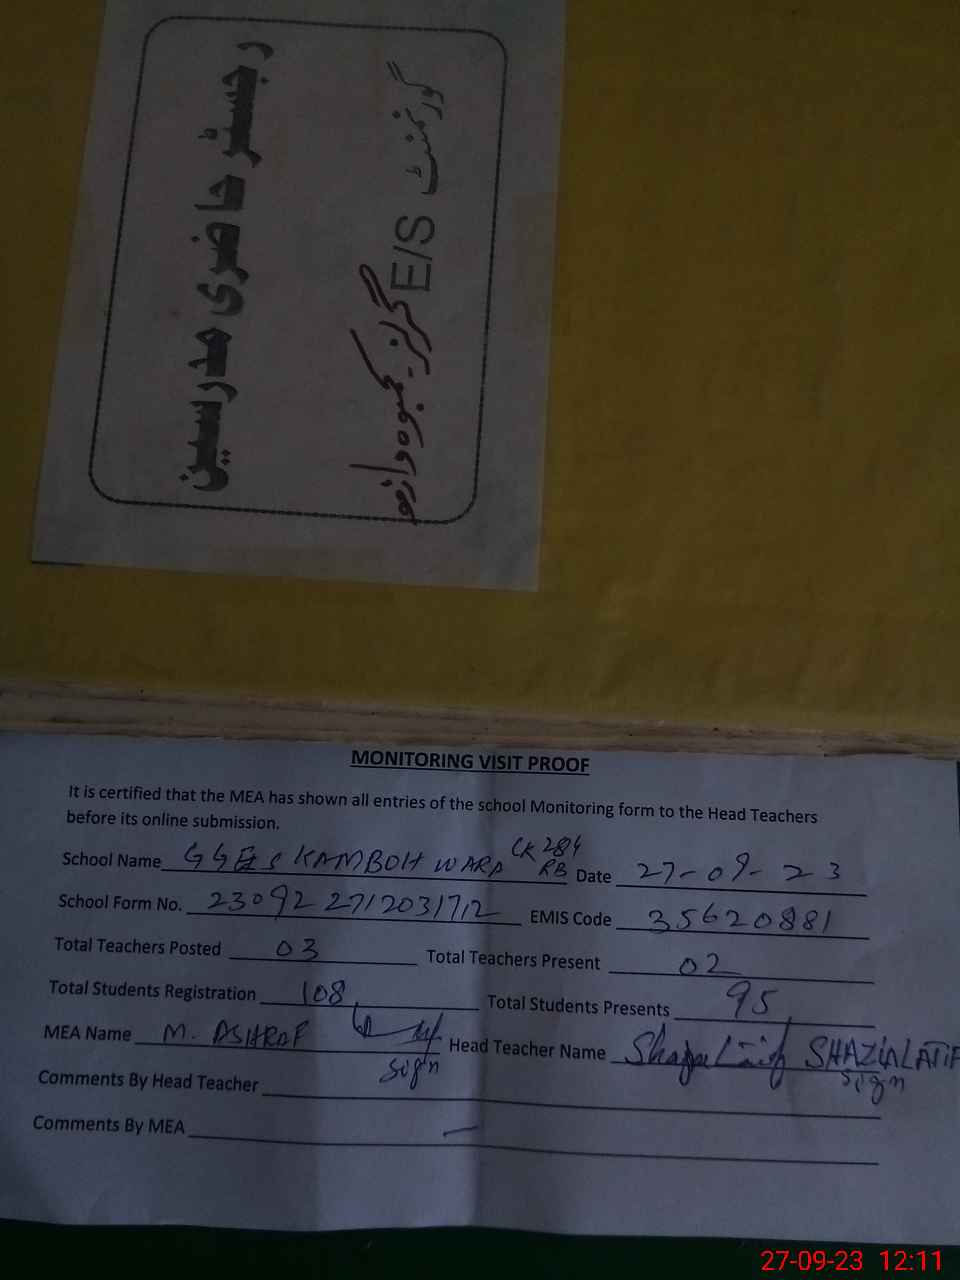 رجسٹر حاضری مدرسین
گورنمنٹ E/S
گرلز کمبوہ واڑہ
MONITORING VISIT PROOF
It is certified that the MEA has shown all entries of the school Monitoring form to the Head Teachers
before its online submission.
School Name GGES KAMBOH WARA CK 284 RB Date 27-09-23
School Form No. 23092 2712031712 EMIS Code 35620881
Total Teachers Posted 03 Total Teachers Present 02
Total Students Registration 108 Total Students Presents 95
MEA Name M. ASHRAF Head Teacher Name SHAZIA LATIF
sign sign
Comments By Head Teacher
Comments By MEA
27-09-23 12:11